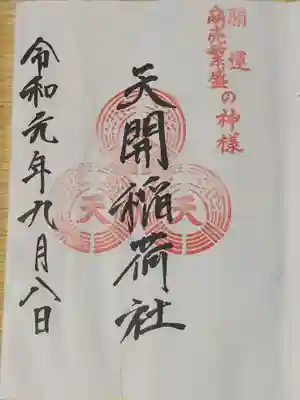 開運
商売繁盛の神様
天開稲荷社
天
天
天
令和元年九月八日